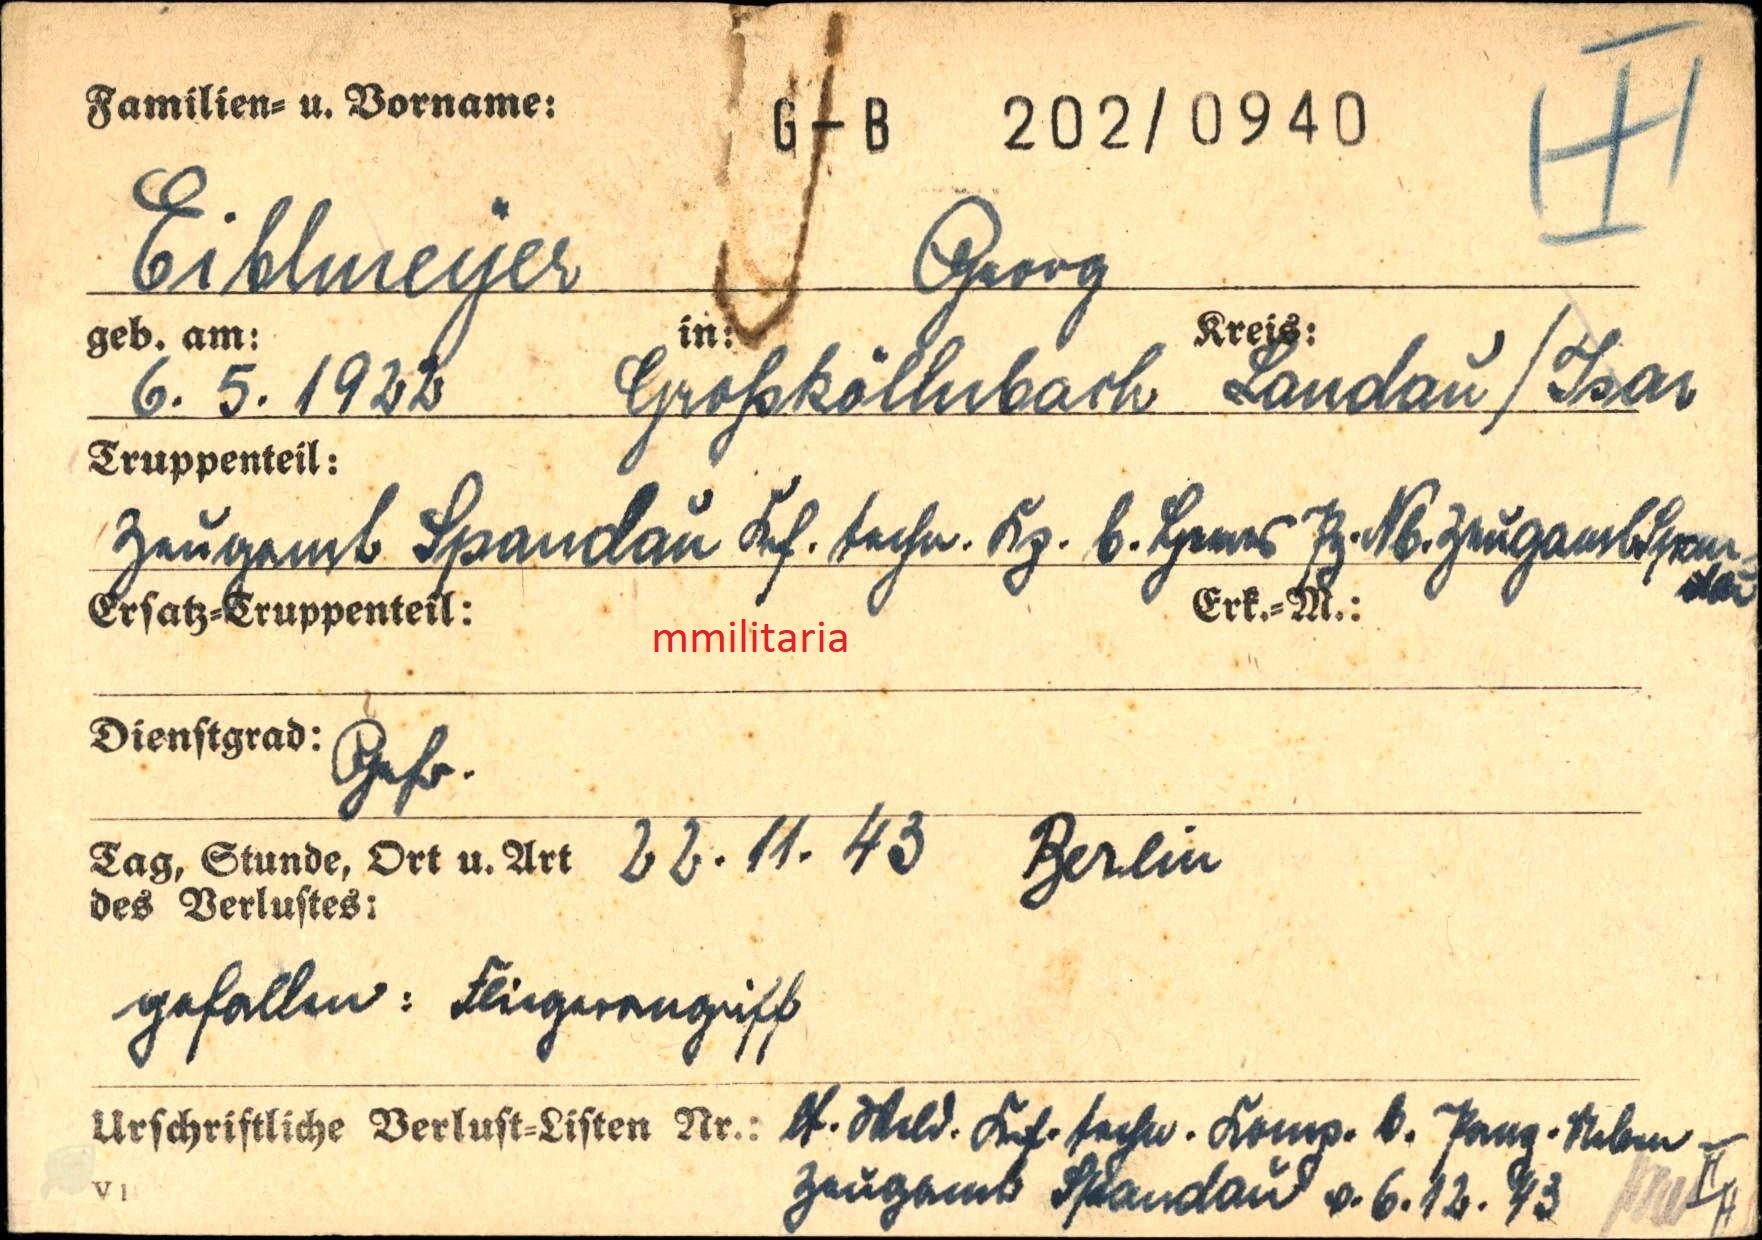 Familien- u. Vorname:
G-B 202/0940
III
Eiblmeyer Georg
geb. am: in: Kreis:
6. 5. 1922 Großköllnbach Landau/Isar
Truppenteil:
Zeugamt Spandau Krf. techn. Kp. b. Pz. Nb. Zeugamt Span-
dau
Ersatz-Truppenteil: Erk.-M.:
mmilitaria
Dienstgrad: Gefr.
Tag, Stunde, Ort u. Art 22. 11. 43 Berlin
des Verlustes:
gefallen: Fliegerangriff
Urschriftliche Verlust-Listen Nr.: lt. Meld. Krf. techn. Komp. b. Panz. Neben-
Zeugamt Spandau v. 6. 12. 43
V 1